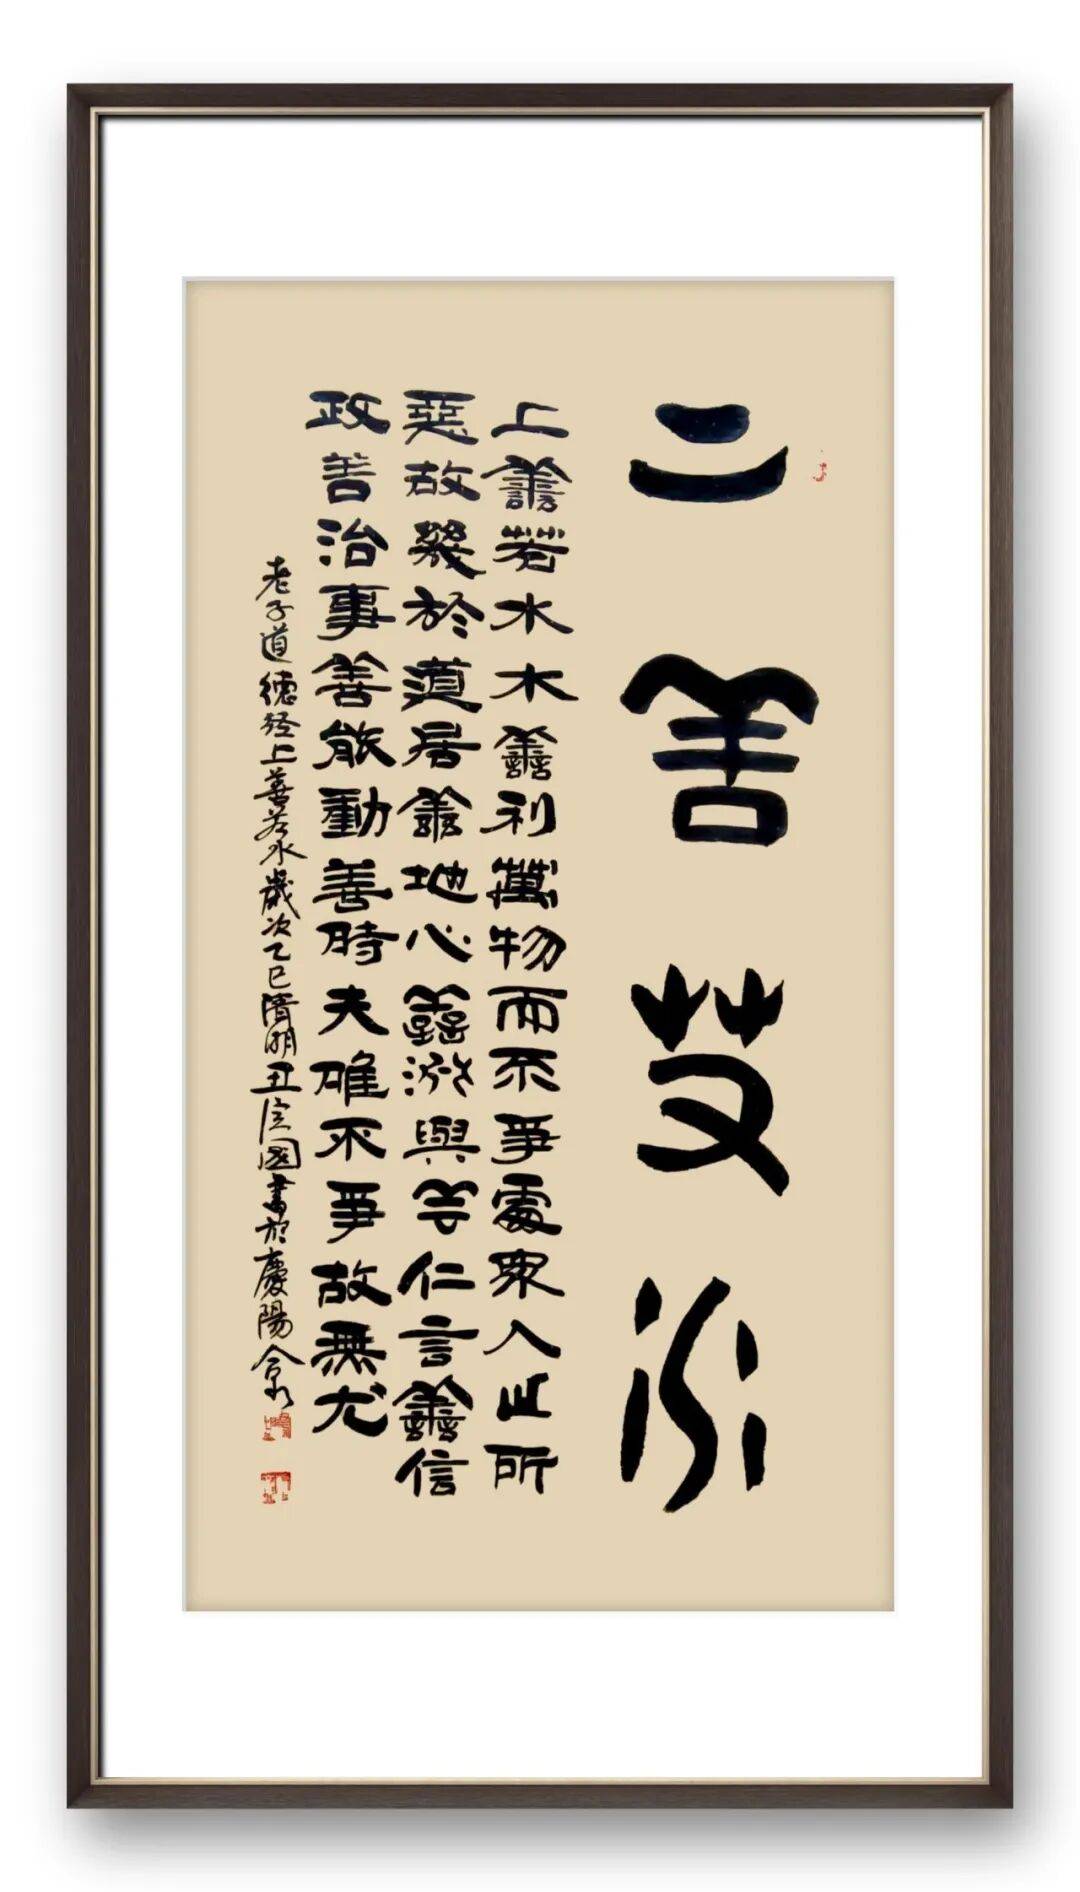 上善若水
上善若水水善利萬物而不爭處眾人之所
惡故幾於道居善地心善淵與善仁言善信
政善治事善能動善時夫唯不爭故無尤
老子道德經上善若水歲次乙巳清明丑定國書於慶陽合水